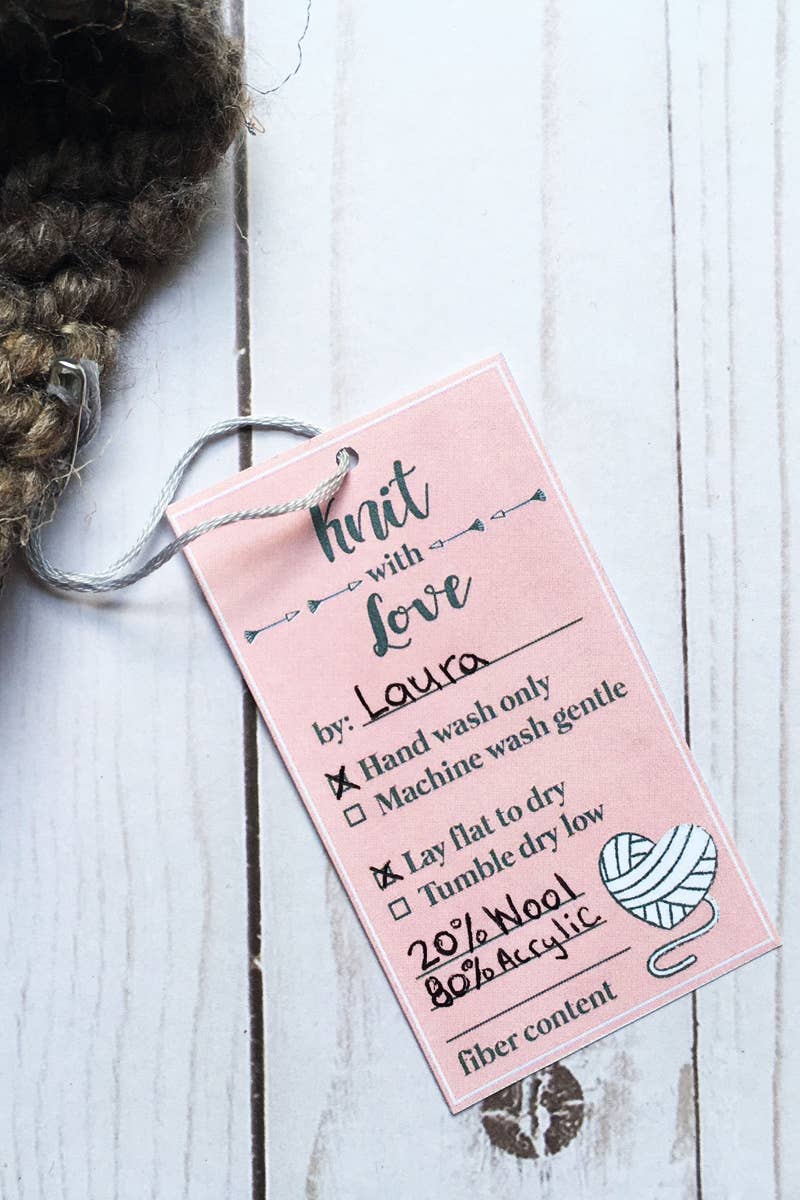 knit
with
Love
by: Laura
Hand wash only
Machine wash gentle
Lay flat to dry
Tumble dry low
20% Wool
80% Acrylic
fiber content